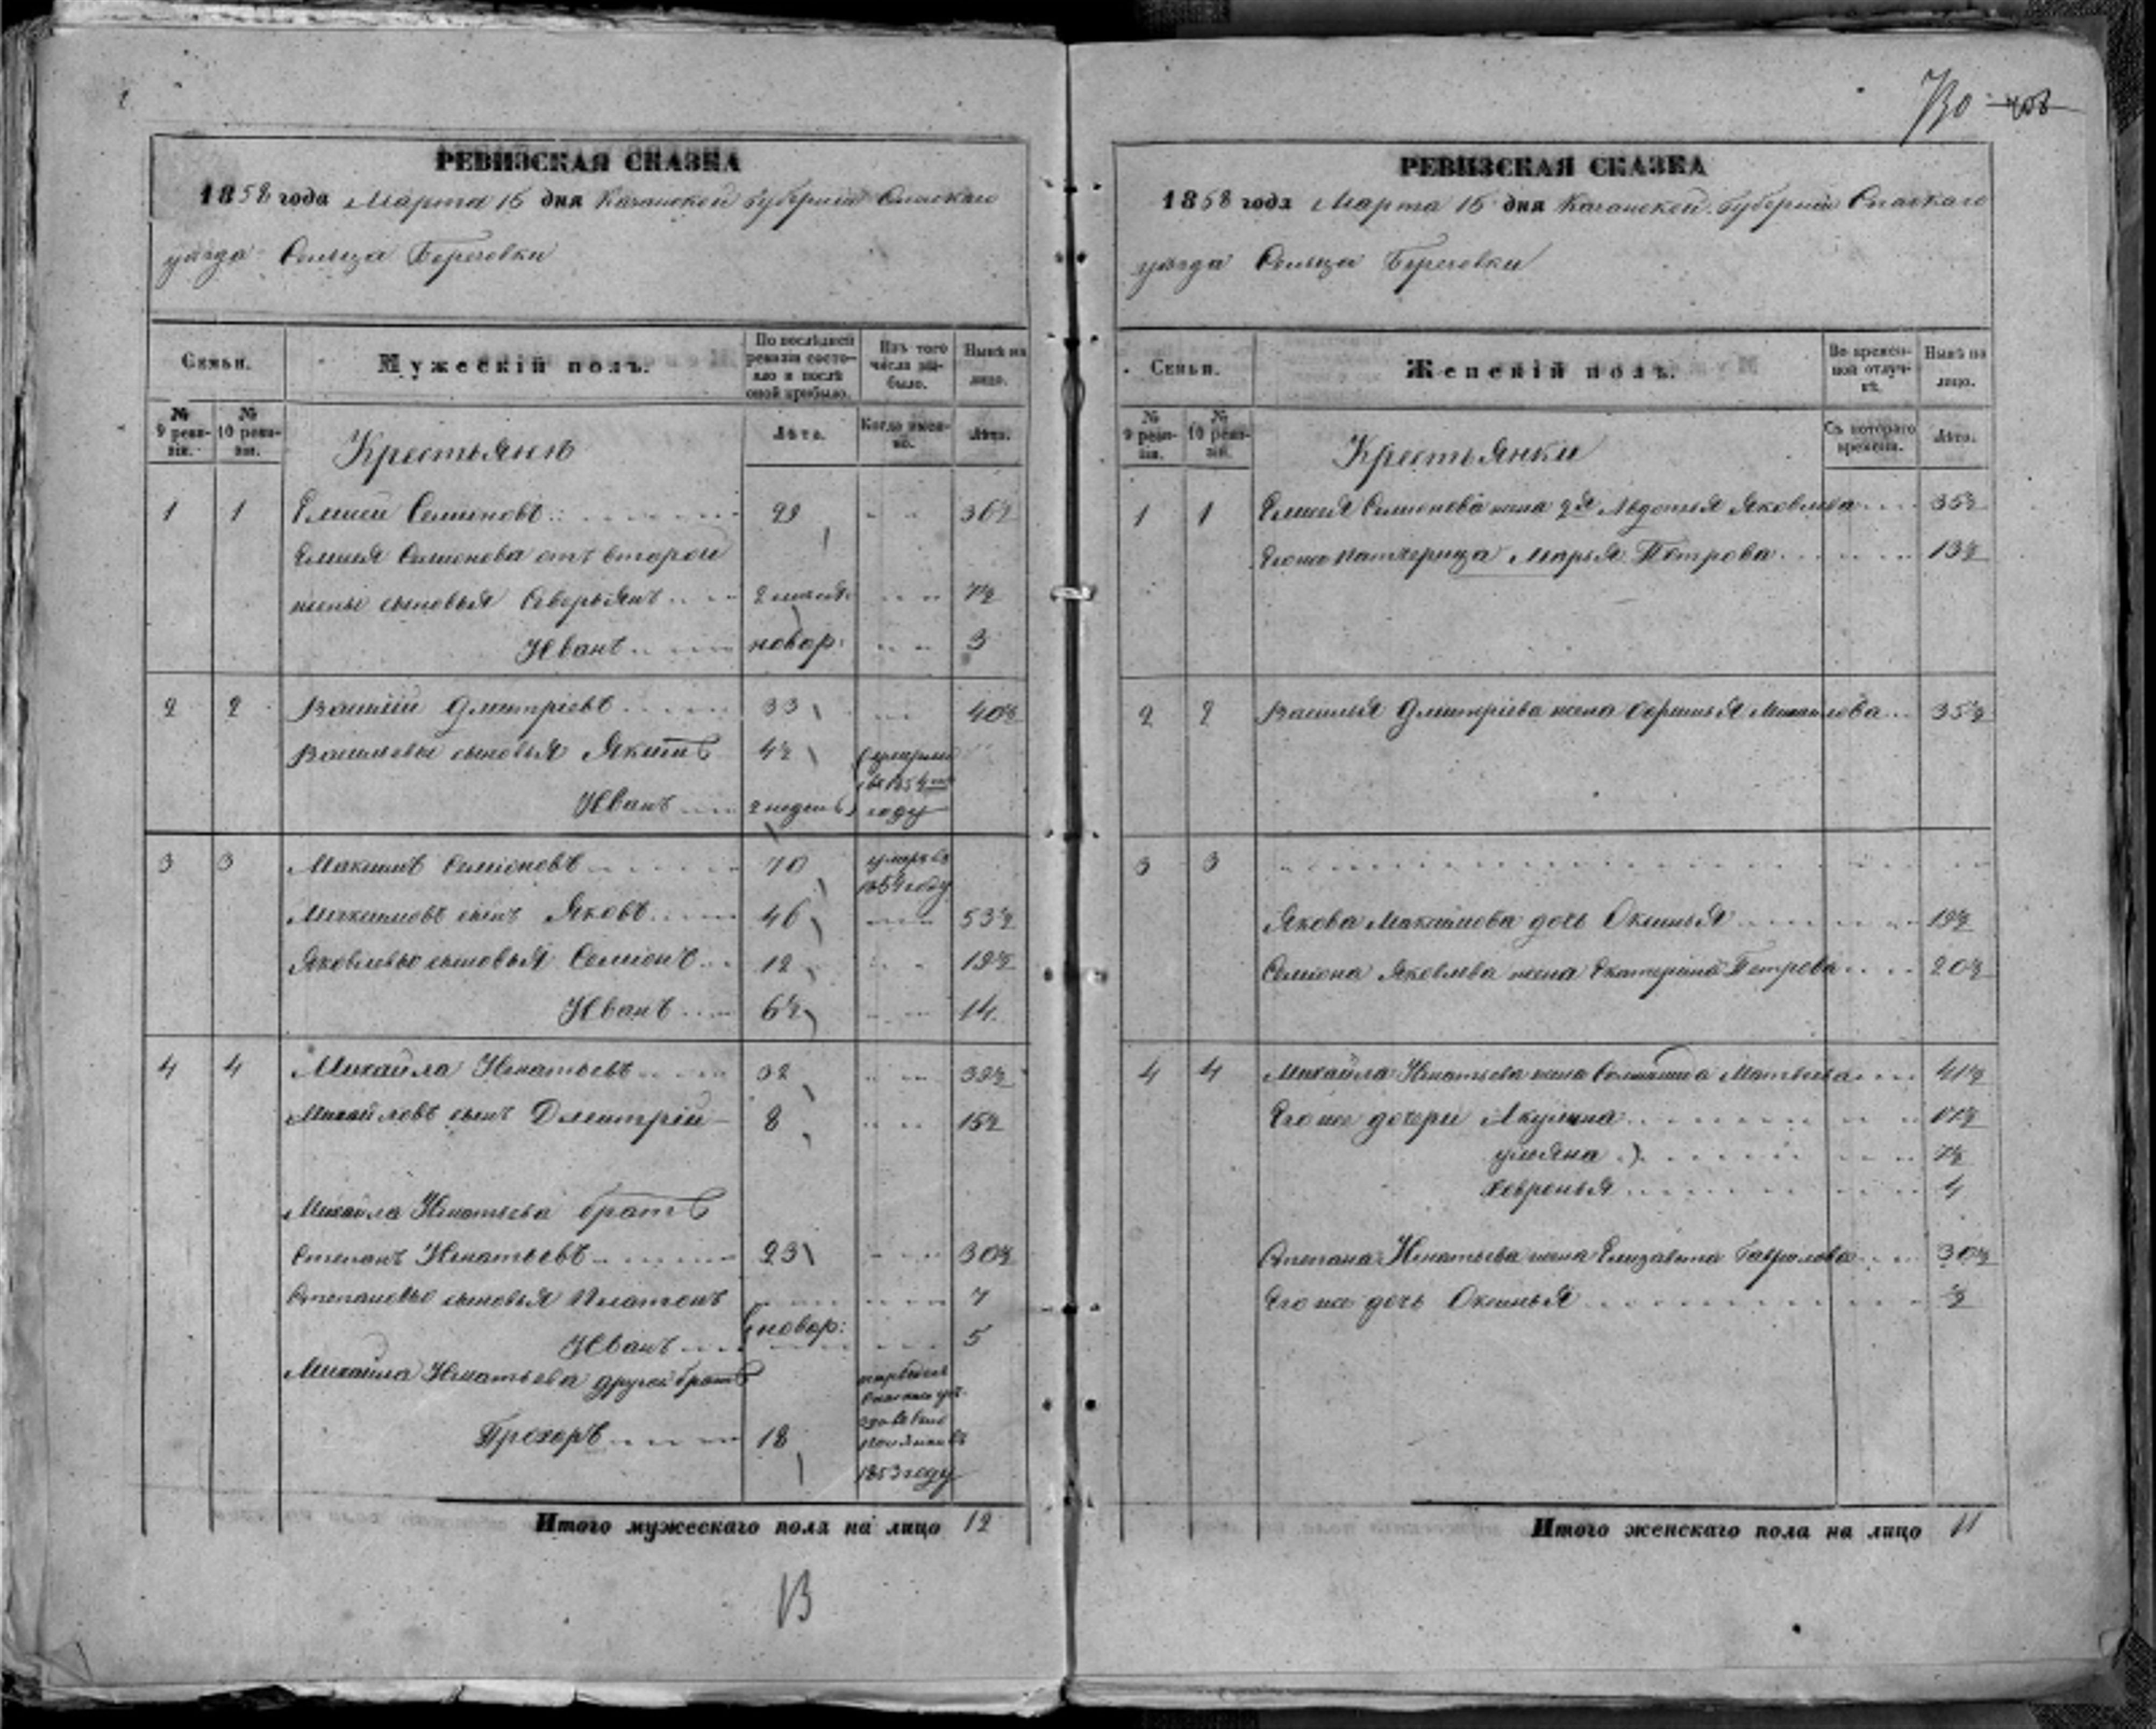 РЕВИЗСКАЯ СКАЗКА
1858 года Марта 15 дня Казанской Губернии Спаскаго
уѣзда Сельца Береговки
Семьи.
Мужескій полъ.
По послѣдней ревизіи состояло и послѣ оной прибыло.
Изъ того числа выбыло.
Нынѣ на лицо.
№ 9 ревизіи.
№ 10 ревизіи.
Крестьянѣ
Лѣта.
Когда именно.
Лѣта.
1 1 Елисей Семионовъ 29 36½
Елисея Семионова отъ второй
жены сыновья Северьянъ 7½
Иванъ новор: 3
2 2 Василій Дмитріевъ 33 40½
Васильевы сыновья Якимъ 4½ умерли
Иванъ 2 недель году
3 3 Максимъ Семіоновъ 70 умеръ въ
1854 году
Максимовъ сынъ Яковъ 46 53½
Яковлевы сыновья Семіонъ 12 19½
Иванъ 6½ 14
4 4 Михайла Игнатьевъ 32 39½
Михайловъ сынъ Дмитрій 8 15½
Михайла Игнатьева братъ
Степанъ Игнатьевъ 23 30½
Степановы сыновья Платонъ 7
новор:
Иванъ 5
Михайла Игнатьева другой братъ
Прохоръ 18
1853 году
Итого мужескаго пола на лицо 12
13
730
РЕВИЗСКАЯ СКАЗКА
1858 года Марта 15 дня Казанской Губерніи Спаскаго
уѣзда Сельца Береговки
Семьи.
Женскій полъ.
Во временной отлучкѣ.
Нынѣ на лицо.
№ 9 ревизіи.
№ 10 ревизіи.
Крестьянки
Съ котораго времени.
Лѣта.
1 1 Елисея Семионова жена 2я Авдотья Яковлева 35½
Его же Марья Петрова 13½
2 2 Василья Дмитріева жена Михайлова 35½
3 3
Якова Максимова дочь Оксинья 19½
Семіона Яковлева жена Екатерина Петрова 20½
4 4 Михайла Игнатьева жена Матвеева 41½
Его же дочери Акулина 11½
ульяна 7½
Ховронья 4
Степана Игнатьева жена Елизавета Гаврилова 30½
Его же дочь Оксинья ½
Итого женскаго пола на лицо 11